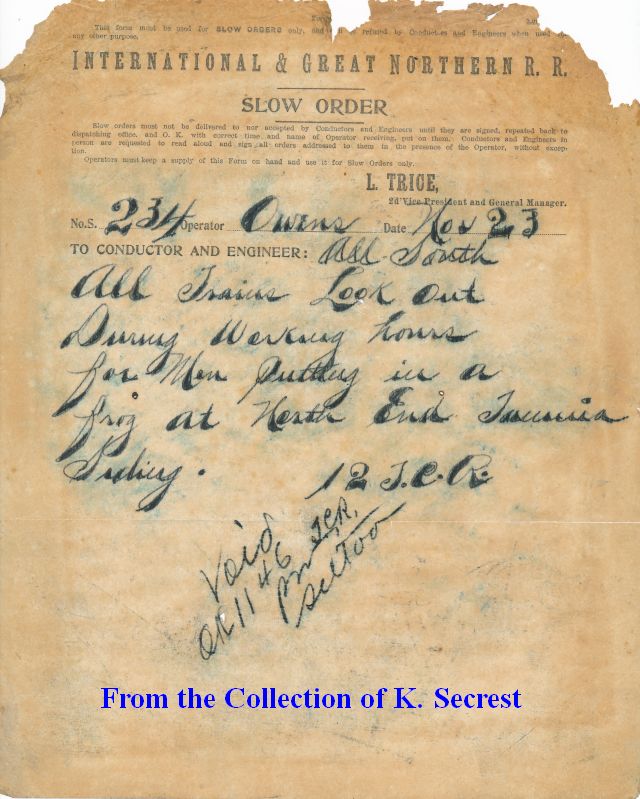 This form must be used for SLOW ORDERS only, and refused by Conductors and Engineers when used for
any other purpose.
INTERNATIONAL & GREAT NORTHERN R. R.
SLOW ORDER
Slow orders must not be delivered to nor accepted by Conductors and Engineers until they are signed, repeated back to
dispatching office, and O. K. with correct time and name of Operator receiving, put on them. Conductors and Engineers in
person are requested to read aloud and sign all orders addressed to them in the presence of the Operator, without excep-
tion.
Operators must keep a supply of this Form on hand and use it for Slow Orders only.
L. TRICE,
2d Vice President and General Manager.
No.S. 234 Operator Owens Date Nov 23
TO CONDUCTOR AND ENGINEER: All South
All Trains Look Out
During Working hours
for Men putting in a
frog at North End
Siding.
12 J.C.R.
Void
OK 1146 JCR.
pm
From the Collection of K. Secrest